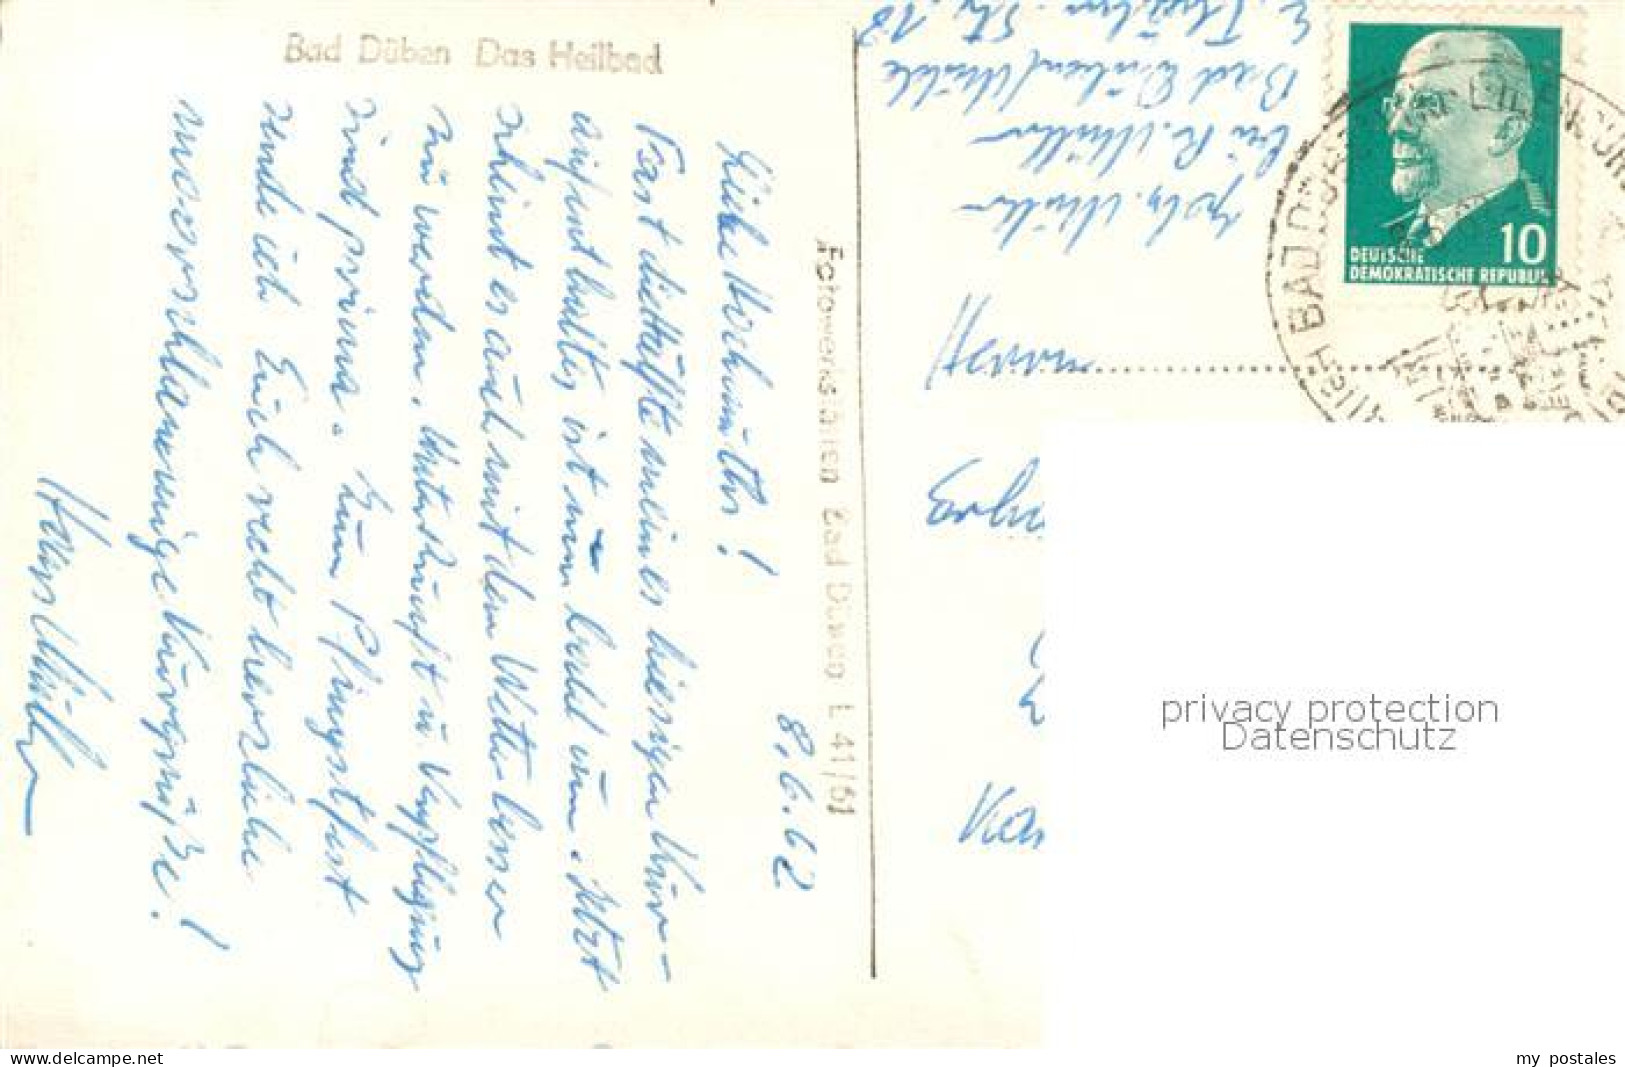 Bad Düben Das Heilbad
8.6.62
Liebe Vockmutter!
Fast die Hälfte meines hiesigen Kur-
aufenthaltes ist nun bald um. Jetzt
scheint es auch mit dem Wetter besser
zu werden. Unterkunft u. Verpflegung
sind prima. Zum Pfingstfest
sende ich Euch recht herzliche
moorschlammige Kurgrüße!
Hans Müller
Fotowerkstätten Bad Düben L 41/61
Joh. Müller
bei R. Müller
Bad Düben/Mulde
E. Thälm. Str. 18
DEUTSCHE
DEMOKRATISCHE REPUBLIK
10
BAD DÜBEN
EILENBURG
privacy protection
Datenschutz
www.delcampe.net
my_postales